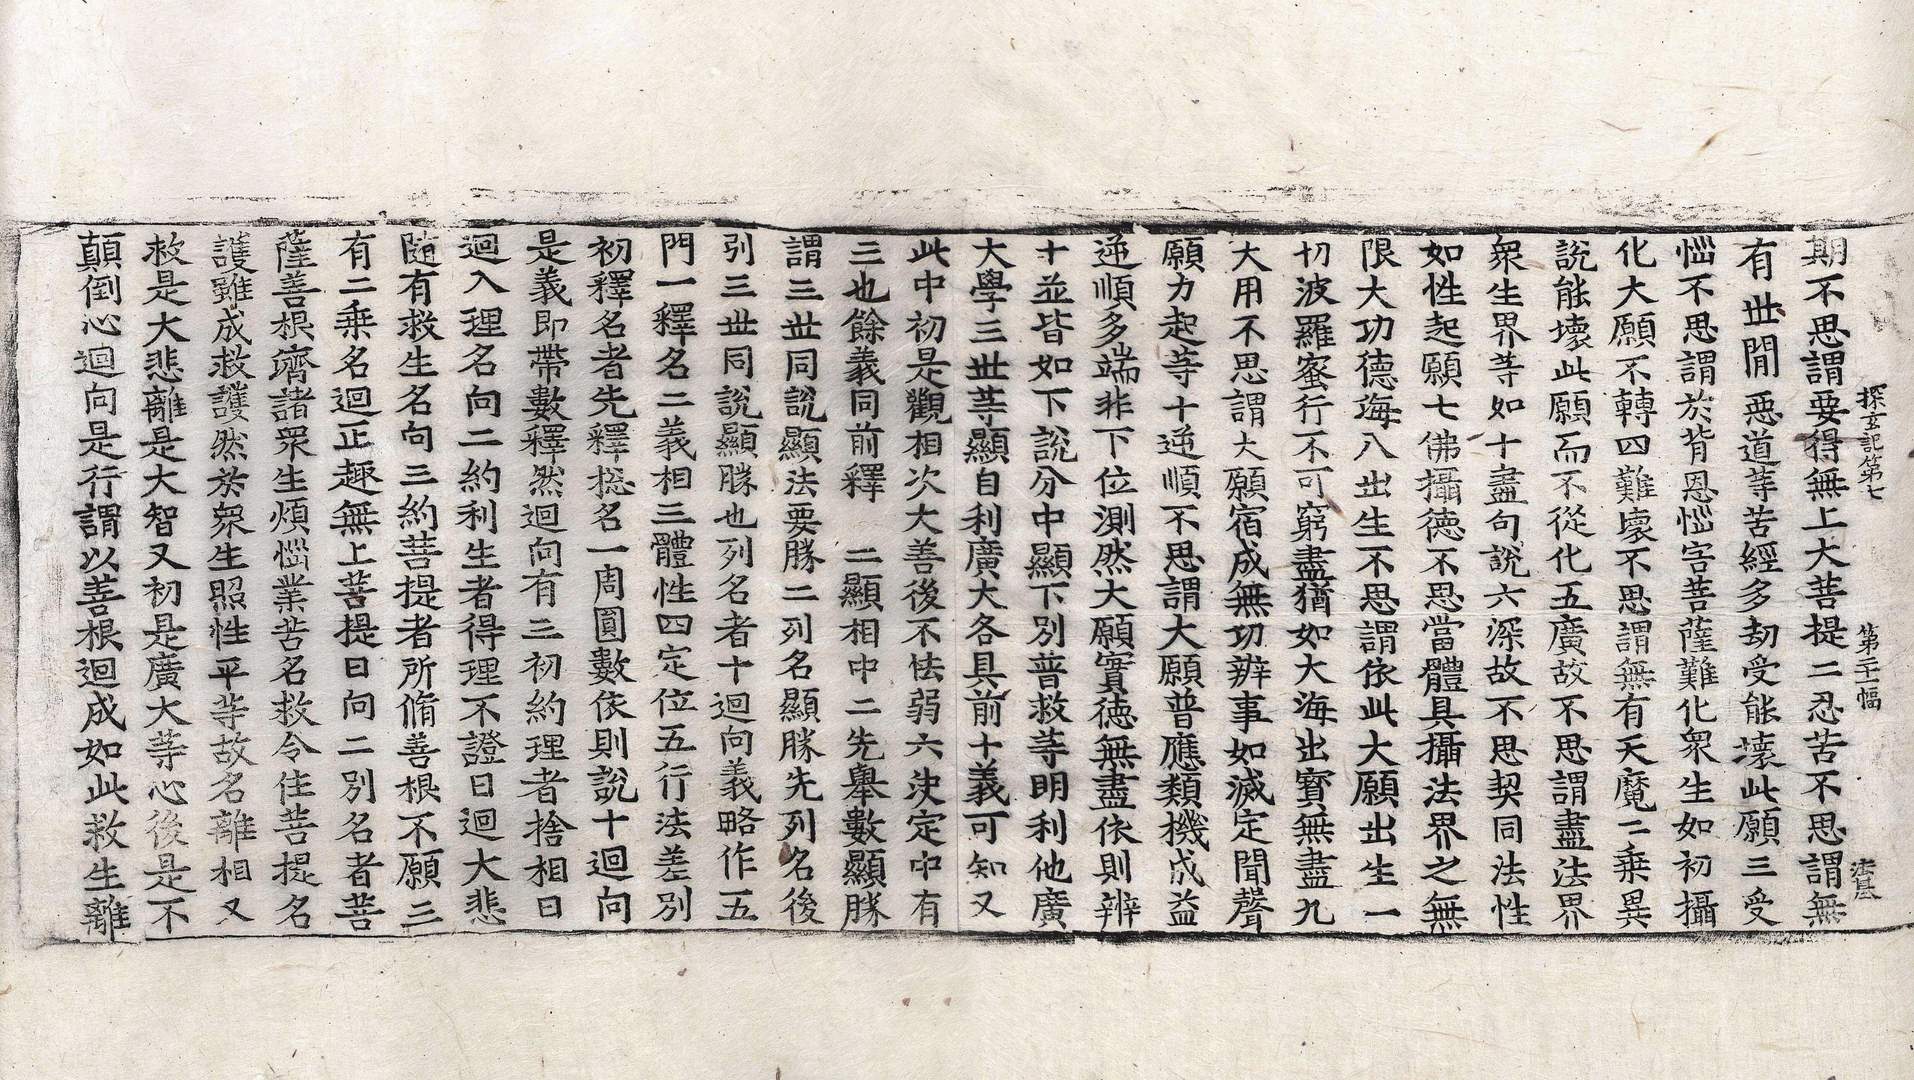 探玄記第七　第二十一幅　法基
期不思謂要得無上大菩提二忍苦不思謂無
有世間惡道等苦經多劫受能壞此願三受
惱不思謂於背恩惱害菩薩難化衆生如初攝
化大願不轉四難壞不思謂無有天魔二乗異
說能壞此願而不從化五廣故不思謂盡法界
衆生界等如十盡句說六深故不思契同法性
如性起願七佛攝德不思當體具攝法界之無
限大功德海八出生不思謂依此大願出生一
切波羅蜜行不可窮盡猶如大海出寳無盡九
大用不思謂大願宿成無功辨事如滅定聞聲
願力起等十逆順不思謂大願普應類機成益
逆順多端非下位測然大願實德無盡依則辨
十並皆如下說分中顯下別普救等明利他廣
大學三世等顯自利廣大各具前十義可知又
此中初是觀相次大善後不怯弱六決定中有
三也餘義同前釋　二顯相中二先舉數顯勝
謂三世同說顯法要勝二列名顯勝先列名後
引三世同說顯勝也列名者十迴向義略作五
門一釋名二義相三體性四定位五行法差別
初釋名者先釋揔名一周圓數依則說十迴向
是義即帶數釋然迴向有三初約理者捨相曰
迴入理名向二約利生者得理不證曰迴大悲
隨有救生名向三約菩提者所脩善根不願三
有二乗名迴正趣無上菩提曰向二別名者菩
薩善根濟諸衆生煩惱業苦名救令住菩提名
護雖成救護然於衆生照性平等故名離相又
救是大悲離是大智又初是廣大等心後是不
顛倒心迴向是行謂以善根迴成如此救生離